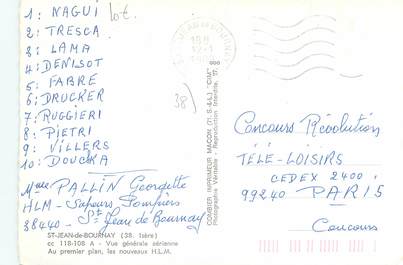 1 : NAGUI lot.
2 : TRESCA
3 : LAMA
4 : DENISOT
5 : FABRE
6 : DRUCKER
7 : RUGGIERI
8 : PIETRI
9 : VILLERS
10 : DOUCKA
Mme PALLIN Georgette
HLM - Sapeurs Pompiers
38440 - St Jean de Bournay
ST-JEAN-de-BOURNAY (38. Isère)
cc 118-108 A - Vue générale aérienne
Au premier plan, les nouveaux H.L.M.
38)
COMBIER IMPRIMEUR MACON (71. S.-&-L.) "CIM"
Photographie Véritable - Reproduction Interdite.
Concours Révolution
TÉLÉ-LOISIRS
CEDEX 2400
99240 PARIS
Concours